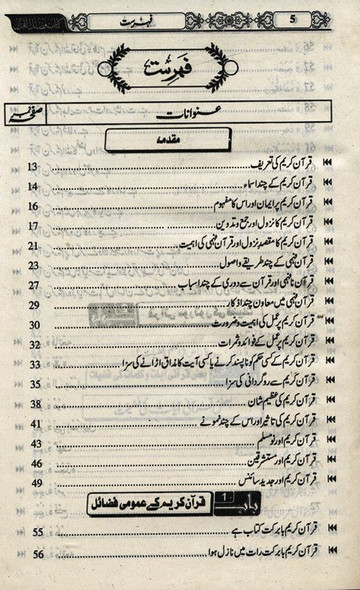 5 فہرست
فہرست
عنوانات صفحہ نمبر
مقدمہ
قرآن کریم کی تعریف 13
قرآن کریم کے چند اسماء 14
قرآن کریم پر ایمان اور اس کا مفہوم 16
قرآن کریم کا نزول اور جمع و تدوین 17
قرآن کریم کا مقصدِ نزول اور قرآن فہمی کی اہمیت 21
قرآن فہمی کے چند طریقے و اصول 23
قرآن نافہمی اور قرآن سے دوری کے چند اسباب 27
قرآن فہمی میں معاون چند اذکار 29
قرآن کریم پر عمل کی اہمیت و ضرورت 30
قرآن کریم پر عمل کے فوائد و ثمرات 32
قرآن کریم کے کسی حکم کو ناپسند کرنے یا کسی آیت کا مذاق اڑانے کی سزا 33
قرآن کریم سے روگردانی کی سزا 35
قرآن کریم کی عظیم شان 38
قرآن کریم کی تاثیر اور اس کے چند نمونے 41
قرآن کریم اور نو مسلم 43
قرآن کریم اور مستشرقین 46
قرآن کریم اور جدید سائنس 49
باب 1 قرآن کریم کے عمومی فضائل
قرآن کریم بابرکت کتاب ہے 55
قرآن کریم بابرکت رات میں نازل ہوا 56